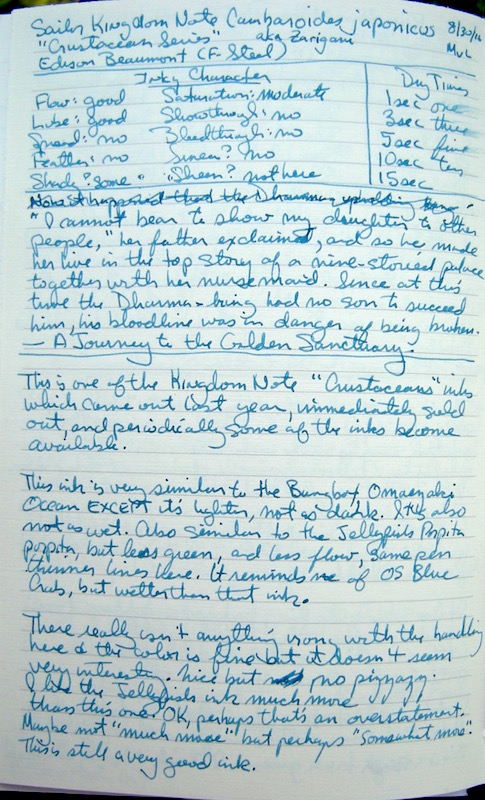 Sailor Kingdom Note Cambaroides japonicus 8/30/16
"Crustacean Series" aka Zarigani MvL
Edison Beaumont (F-Steel)
Inky Character Dry Times
Flow: good Saturation: moderate 1sec one
Lube: good Showthrough: no 3sec three
Spread: no Bleedthrough: no 5sec five
Feather: no Smear? no 10sec ten
Shady? some "Sheen"? not here 15sec
Now it happened that the Dharma
"I cannot bear to show my daughter to other
people," her father exclaimed, and so he made
her live in the top story of a nine-storied palace
together with her nursemaid. Since at this
time the Dharma-king had no son to succeed
him, his bloodline was in danger of being broken.
— A Journey to the Golden Sanctuary.
This is one of the Kingdom Note "Crustaceans" inks
which came out last year, immediately sold
out, and periodically some of the inks become
available.
This ink is very similar to the Bungbox Omaezaki
Ocean EXCEPT it's lighter, not as dark. It's also
not as wet. Also similar to the Jellyfish Porpita
porpita, but less green, and less flow, same pen
thinner lines here. It reminds me of OS Blue
Crab, but wetter than that ink.
There really isn't anything wrong with the handling
here & the color is fine but it doesn't seem
very interesty. Nice but no pizzazz.
I like the Jellyfish ink much more
than this one. OK, perhaps that's an overstatement.
Maybe not "much more" but perhaps "somewhat more".
This is still a very good ink.